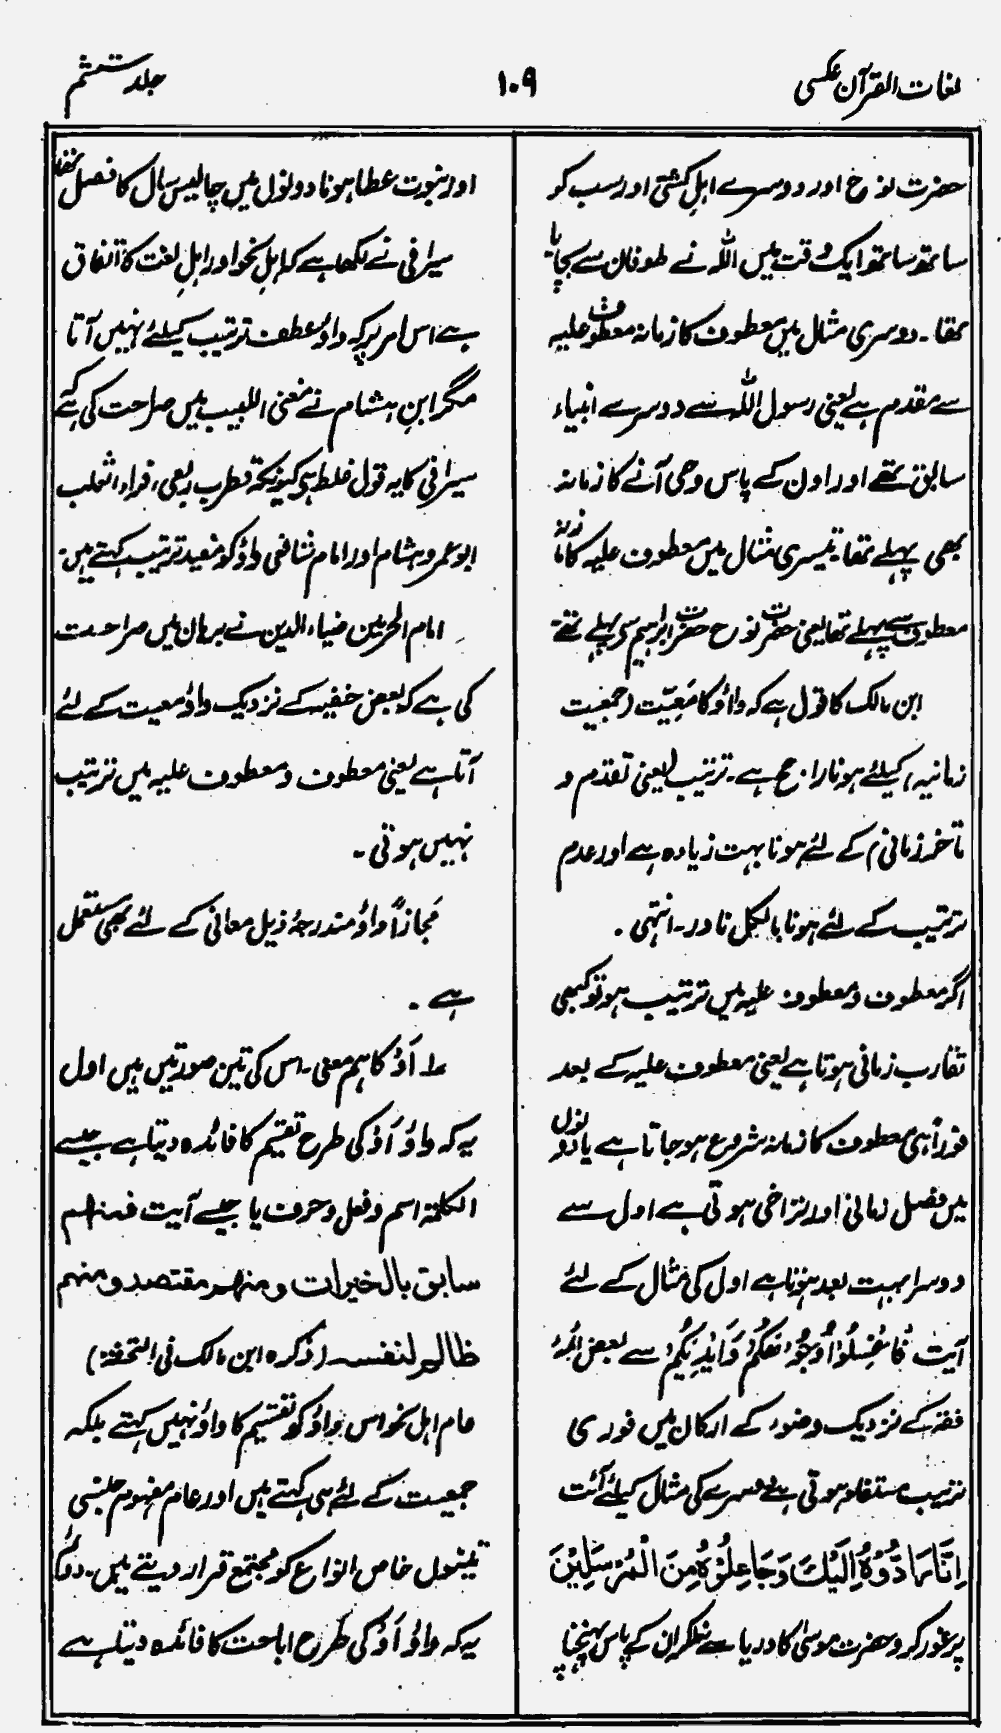 لغات القرآن عکسی
۱۰۹
جلد ششم
حضرت نوح اور دوسرے اہلِ کشتی اور سب کو
ساتھ ساتھ ایک وقت میں اللہ نے طوفان سے بچایا
تھا۔ دوسری مثال میں معطوف کا زمانہ معطوف علیہ
سے مقدم ہے یعنی رسول اللہ سے دوسرے انبیاء
سابق تھے اور اون کے پاس وحی آنے کا زمانہ
بھی پہلے تھا تیسری مثال میں معطوف علیہ کا زمانہ
معطوف سے پہلے تھا یعنی حضرت نوح حضرت ابراہیم سے پہلے تھے
ابن مالک کا قول ہے کہ واؤ کا مَعِیّت (جمعیت
زمانیہ) کیلئے ہونا راجح ہے۔ ترتیب یعنی تقدم و
تأخر زمانی کے لئے ہونا بہت زیادہ ہے اور عدم
ترتیب کے لئے ہونا بالکل نادر۔ انتہی۔
اگر معطوف و معطوف علیہ میں ترتیب ہو تو کبھی
تقارب زمانی ہوتا ہے یعنی معطوف علیہ کے بعد
فوراً ہی معطوف کا زمانہ شروع ہو جاتا ہے یا دونوں
میں فصل زمانی اور تراخی ہوتی ہے اول سے
دوسرا بہت بعد ہوتا ہے اول کی مثال کے لئے
آیت فَاغْسِلُوْا وُجُوْهَكُمْ وَاَيْدِيَكُمْ سے بعض ائمۂ
فقہ کے نزدیک وضوء کے ارکان میں فوری
ترتیب مستفاد ہوتی ہے دوسرے کی مثال کیلئے آیت
اِنَّا رَادُّوْهُ اِلَيْكَ وَجَاعِلُوْهُ مِنَ الْمُرْسَلِيْنَ
پر غور کرو حضرت موسیٰ کا دریا سے نکلکر ان کے پاس پہنچنا
اور نبوت عطا ہونا دونوں میں چالیس سال کا فصل تھا
سیرافی نے لکھا ہے کہ اہلِ نحو اور اہلِ لغت کا اتفاق
ہے اس امر پر کہ واؤ عطف ترتیب کیلئے نہیں آتا
مگر ابنِ ہشام نے مغنی اللبیب میں صراحت کی ہے کہ
سیرافی کا یہ قول غلط ہے کیونکہ قطرب ربعی، فراء، ثعلب
ابو عمر و ہشام اور امام شافعی واؤ کو مفید ترتیب کہتے ہیں۔
امام الحرمین ضیاء الدین نے برہان میں صراحت
کی ہے کہ بعض حنفیہ کے نزدیک واؤ معیت کے لئے
آتا ہے یعنی معطوف و معطوف علیہ میں ترتیب
نہیں ہوتی۔
مجازاً واؤ مندرجۂ ذیل معانی کے لئے بھی مستعمل
ہے۔
۱۔ اَوْ کا ہم معنی۔ اس کی تین صورتیں ہیں اول
یہ کہ واؤ اَوْ کی طرح تقسیم کا فائدہ دیتا ہے جیسے
الکلمۃ اسم و فعل و حرف یا جیسے آیت فمنھم
سابق بالخیرات ومنھم مقتصد ومنہم
ظالم لنفسہ (ذکرہ ابن مالک فی التحفۃ)
عام اہل نحو اس واؤ کو تقسیم کا واؤ نہیں کہتے بلکہ
جمعیت کے لئے ہی کہتے ہیں اور عام مفہوم جنسی
میں خاص انواع کو مجتمع قرار دیتے ہیں۔ دوم
یہ کہ واؤ اَوْ کی طرح اباحت کا فائدہ دیتا ہے